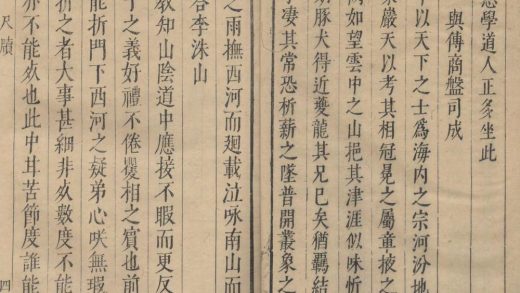 學道人正多坐此
與傅商盤司成
以天下之士爲海内之宗河汾地
嚴天以考其相冠冕之屬童掖之
例如望雲中之山挹其津涯似味忻
助豚犬得近夔龍其兄已矣猶羈結
凄其常恐析薪之墜普開叢象之
之雨撫西河而廻載泣咏南山而
答李洙山
教知山陰道中應接不暇而更反
之義好禮不倦矍相之賔也前
能折門下西河之疑弟心咲無瑕
折之者大事甚細非欬數度不能
亦不能欬也此中甘苦節度誰能
尺牘 四